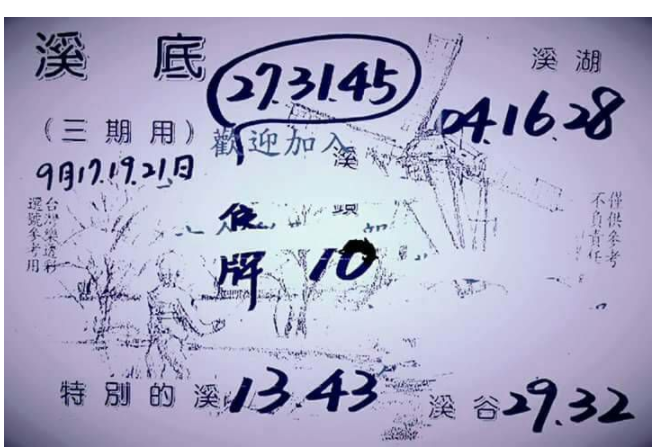 溪底
27.31.45
溪湖
04.16.28
(三期用)
歡迎加入
9月17.19.21日
溪
頭
台灣樂透彩
選號參考用
僅供參考
不負責任
牌 10
特別的溪 13.43
溪谷 29.32